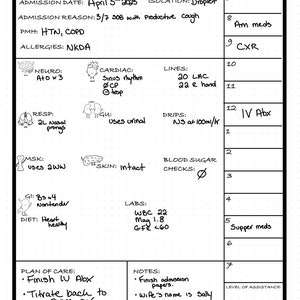 ADMISSION DATE: April 5th 2025
ISOLATION: Droplet
ADMISSION REASON: 5/7 SOB with Productive Cough
PMH: HTN, COPD
ALLERGIES: NKDA
8 Am meds
9 CXR
10
11
12 IV Abx
1
2
3
4
5 Supper meds
6
7
NEURO:
A+O x3
CARDIAC:
Sinus rhythm
∅CP
∅trop
LINES:
20 LAC
22 R hand
RESP:
2L Nasal
prongs
GU:
uses urinal
DRIPS:
NS at 100ml/hr
MSK:
uses 2WW
SKIN:
intact
BLOOD SUGAR
CHECKS: ∅
GI:
BS x4
Nontender
DIET: Heart
healthy
LABS:
WBC 22
Mag 1.8
GFR <60
PLAN OF CARE:
• Finish IV Abx
• Titrate back to
NOTES:
• Finish admission
papers.
• Wife's name is Sally
LEVEL OF ASSISTANCE: